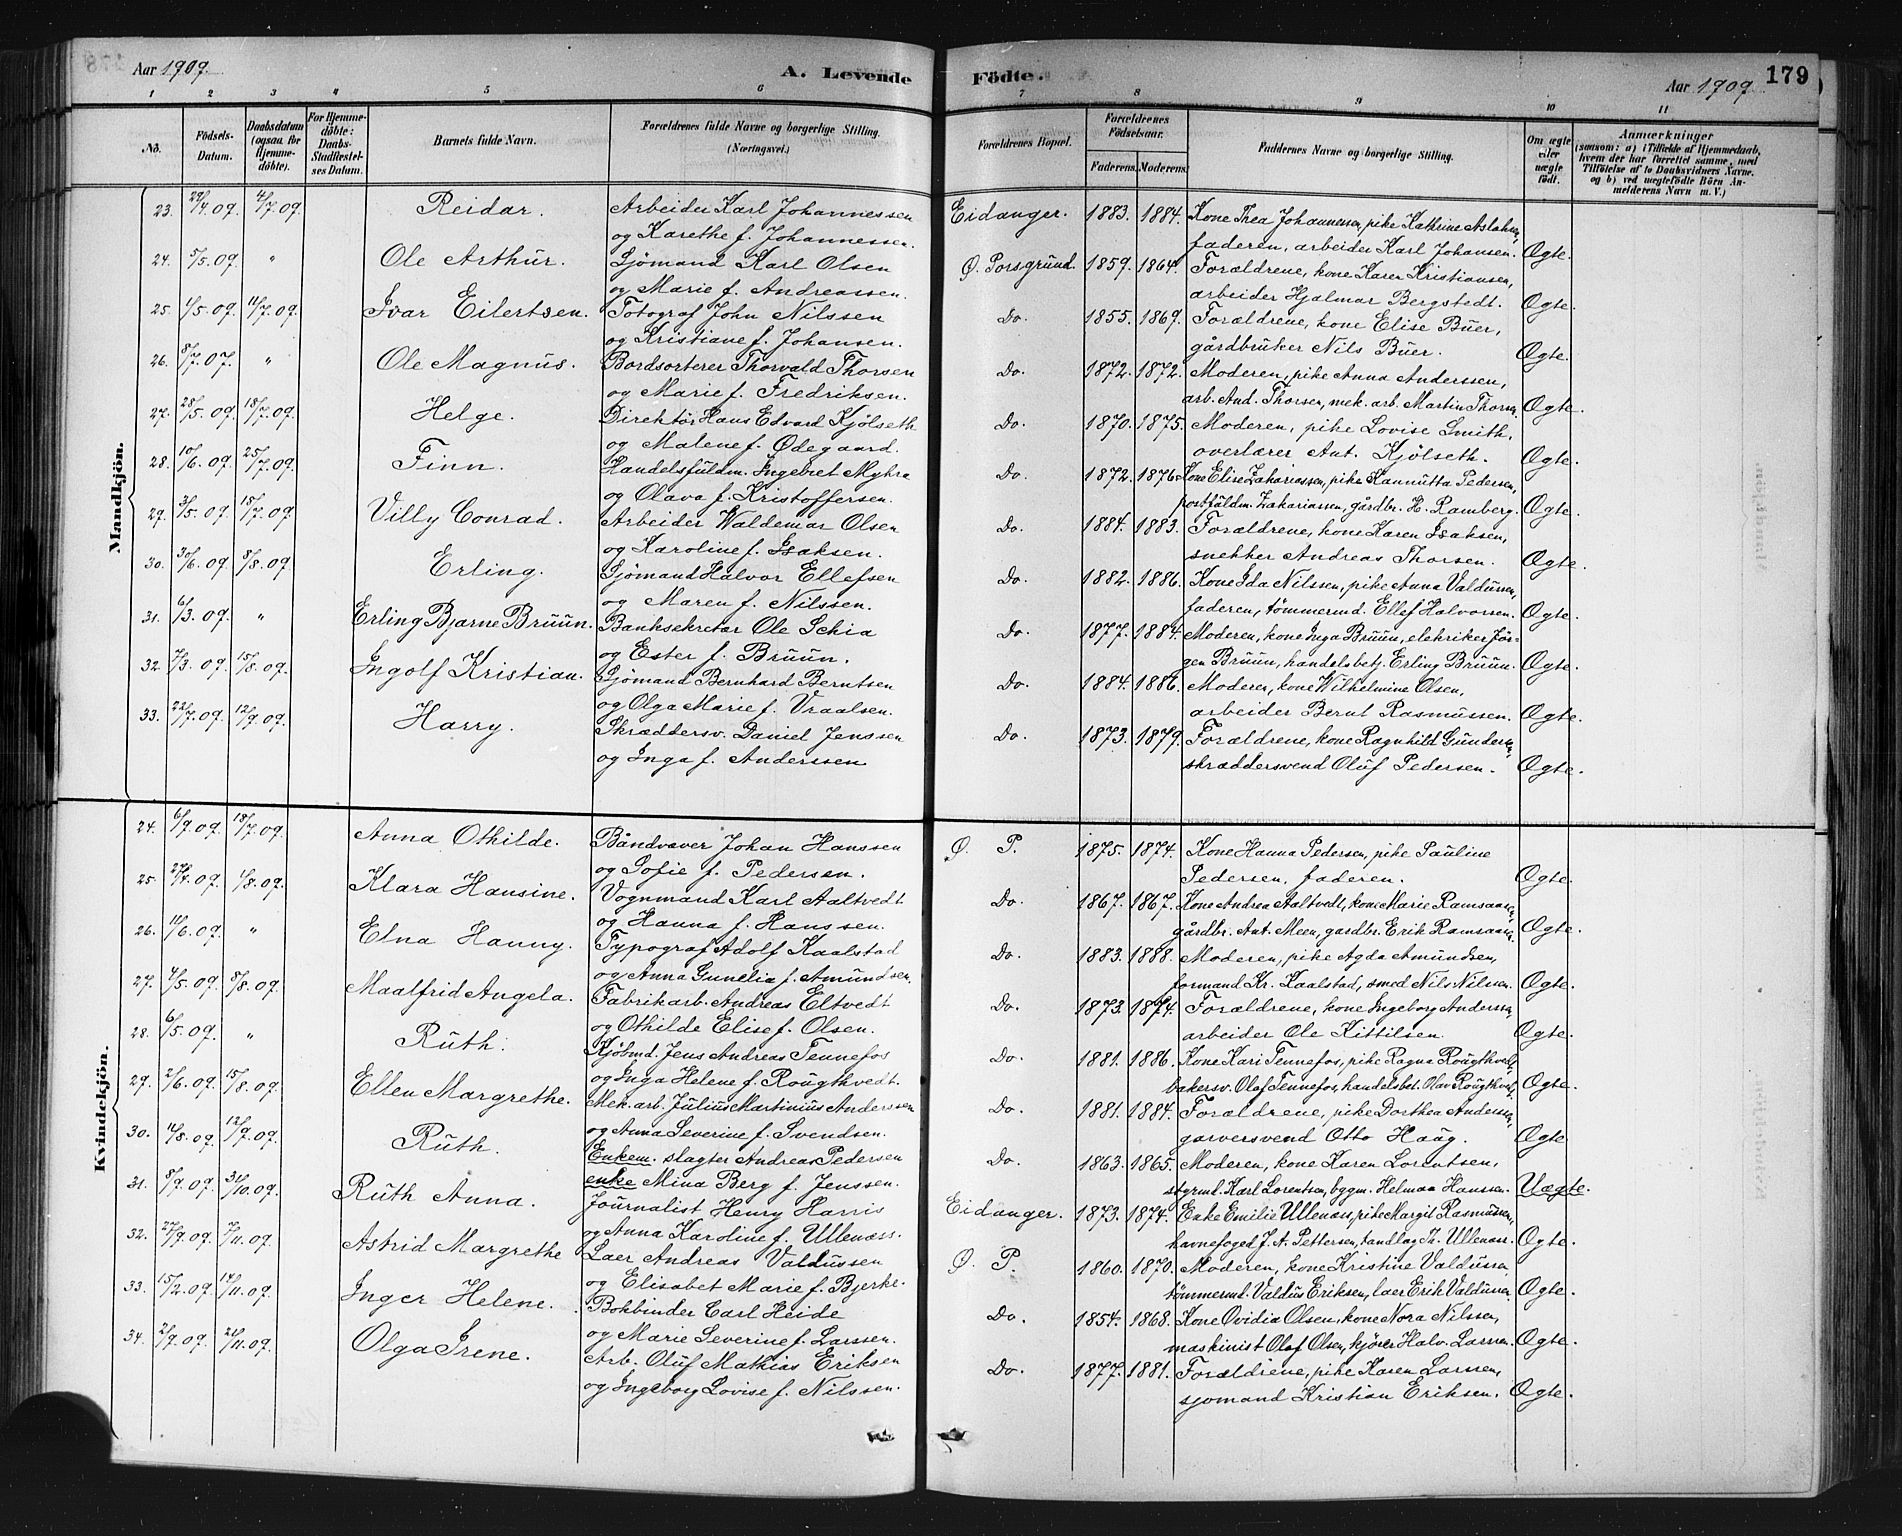 Aar 1909.
A. Levende
Födte.
Aar 1909.
179
1 2 3 4 5 6 7 8 9 10 11
No.
Födsels-Datum.
Daabsdatum (ogsaa for Hjemmedöbte).
For Hjemmedöbte: Daabs-Stadfæstelses Datum.
Barnets fulde Navn.
Forældrenes fulde Navne og borgerlige Stilling.
(Næringsvei.)
Forældrenes Bopæl.
Forældrenes Födselsaar.
Faderens. Moderens.
Faddernes Navne og borgerlige Stilling.
Om ægte eller uægte født.
Anmærkninger
(saasom: a) i Tilfælde af Hjemmedaab, hvem der har forrettet samme, med Tilföielse af to Daabsvidners Navne, og b) ved uægtefödte Börn Anmelderens Navn m. V.)
Mandkjön.
23. 29/4.09. 4/7.09. Reidar. Arbeider Karl Johannessen Eidanger. 1883. 1884. Kone Thea Johannessen, pike Kathrine Aslaksen,
og Karethe f. Johannessen. faderen, arbeider Karl Johansen. Ægte.
24. 5/5.09. " Ole Arthur. Sjömand Karl Olsen Ø. Porsgrund. 1859. 1864. Forældrene, kone Karen Kristiansen,
og Marie f. Andreassen. arbeider Hjalmar Bergstedt. Ægte.
25. 1/5.09. 11/7.09. Ivar Eilertsen. Fotograf John Nilssen Do. 1855. 1869. Forældrene, kone Elise Buer,
og Kristiane f. Johansen. gårdbruker Nils Buer. Ægte.
26. 8/7.07. " Ole Magnus. Bordsorterer Thorvald Thorsen Do. 1872. 1872. Moderen, pike Anna Anderssen,
og Marie f. Fredriksen. arb. And. Thorsen, mek. arb. Martin Thorsen. Ægte.
27. 28/5.09. 18/7.09. Helge. Direktör Hans Edvard Kjölseth Do. 1870. 1875. Moderen, pike Lovise Smith,
og Malene f. Ødegaard. overlærer Ant. Kjölseth. Ægte.
28. 10/6.09. 25/7.09. Finn. Handelsfuldm. Ingebret Myhra Do. 1872. 1876. Kone Elise Zakariassen, pike Hannutta Pedersen,
og Olava f. Kristoffersen. postfuldm. Zakariassen, gårdbr. H. Ramberg. Ægte.
29. 3/5.09. 15/7.09. Villy Conrad. Arbeider Waldemar Olsen Do. 1884. 1883. Forældrene, kone Karen Isaksen,
og Karoline f. Isaksen. snekker Andreas Thorsen. Ægte.
30. 30/6.09. 8/8.09. Erling. Sjömand Halvor Ellefsen Do. 1882. 1886. Kone Ida Nilssen, pike Anna Valdussen,
og Maren f. Nilssen. faderen, tömmermd. Ellef Halvorsen. Ægte.
31. 6/3.09. " Erling Bjarne Bruun. Banksekretær Ole Schia Do. 1877. 1884. Moderen, kone Inga Bruun, elektriker Jör-
og Ester f. Bruun. gen Bruun, handelsbetj. Erling Bruun. Ægte.
32. 7/3.09. 15/8.09. Ingolf Kristian. Sjömand Bernhard Berntsen Do. 1884. 1886. Moderen, kone Wilhelmine Olsen,
og Olga Marie f. Vraalsen. arbeider Bernt Rasmussen. Ægte.
33. 22/7.09. 12/9.09. Harry. Skræddersv. Daniel Jenssen Do. 1873. 1879. Forældrene, kone Ragnhild Gundersen,
og Inga f. Anderssen skræddersvend Oluf Pedersen. Ægte.
Kvindekjön.
24. 6/9.09. 18/7.09. Anna Othilde. Båndvæver Johan Hanssen Ø. P. 1875. 1874. Kone Hanna Pedersen, pike Pauline
og Sofie f. Pedersen. Pedersen, faderen. Ægte.
25. 09. 1/8.09. Klara Hansine. Vognmand Karl Aaltvedt Do. 1867. 1867. Kone Andrea Aaltvedt, kone Marie Ramsaasen,
og Hanna f. Hanssen. gårdbr. Ant. Meen, gardbr. Erik Ramsaasen. Ægte.
26. 11/6.09. " Elna Hanny. Typograf Adolf Kaalstad Do. 1883. 1888. Moderen, pike Agda Amundsen,
og Anna Gunelia f. Amundsen. formand Kr. Kaalstad, smed Nils Nilsen. Ægte.
27. 4/5.09. 8/8.09. Maalfrid Angela. Fabrikarb. Andreas Eltvedt Do. 1873. 1874. Forældrene, kone Ingeborg Anderssen,
og Othilde Elise f. Olsen. arbeider Ole Kittilsen. Ægte.
28. 6/5.09. " Ruth. Kjöbmd. Jens Andreas Tennefos Do. 1881. 1886. Kone Kari Tennefos, pike Ragna Rougthvedt,
og Inga Helene f. Rougthvedt. bakersv. Olaf Tennefos, handelsbet. Olav Rougthvedt. Ægte.
29. 2/6.09. 15/8.09. Ellen Margrethe. Mek. arb. Julius Martinius Anderssen Do. 1881. 1884. Forældrene, pike Dorthea Andersen,
og Anna Severine f. Svendsen. garversvend Otto Haag. Ægte.
30. 14/8.09. 12/9.09. Ruth. Enkem. slagter Andreas Pedersen Do. 1863. 1865. Moderen, kone Karen Lorentsen,
enke Mina Berg f. Jenssen. styrmd. Karl Lorentsen, bygm. Helman Hanssen. Uægte.
31. 8/9.09. 31/10.09. Ruth Anna. Journalist Henry Harris Eidanger. 1873. 1874. Enke Emilie Ullenæss, pike Margit Rasmussen,
og Anna Karoline f. Ullenæss. havnefoged J. A. Pettersen, tandlæg Th. Ullenæss. Ægte.
32. 27/9.09. 7/11.09. Astrid Margrethe Laer Andreas Valdussen Ø. P. 1860. 1870. Moderen, kone Kristine Valdussen,
og Elisabet Marie f. Bjerke. tömmermd. Valdus Eriksen, laer Erik Valdussen. Ægte.
33. 15/2.09. 14/11.09. Inger Helene. Bokbinder Carl Heide Do. 1854. 1868. Kone Ovidia Olsen, kone Nora Nilssen,
og Marie Severine f. Larssen. maskinist Olaf Olsen, kjörer Halv. Larsen. Ægte.
34. 2/9.09. 21/11.09. Olga Irene. Arb. Oluf Mathias Eriksen Do. 1877. 1881. Forældrene, pike Karen Larsen,
og Ingeborg Lovise f. Nilssen. sjomand Kristian Eriksen. Ægte.